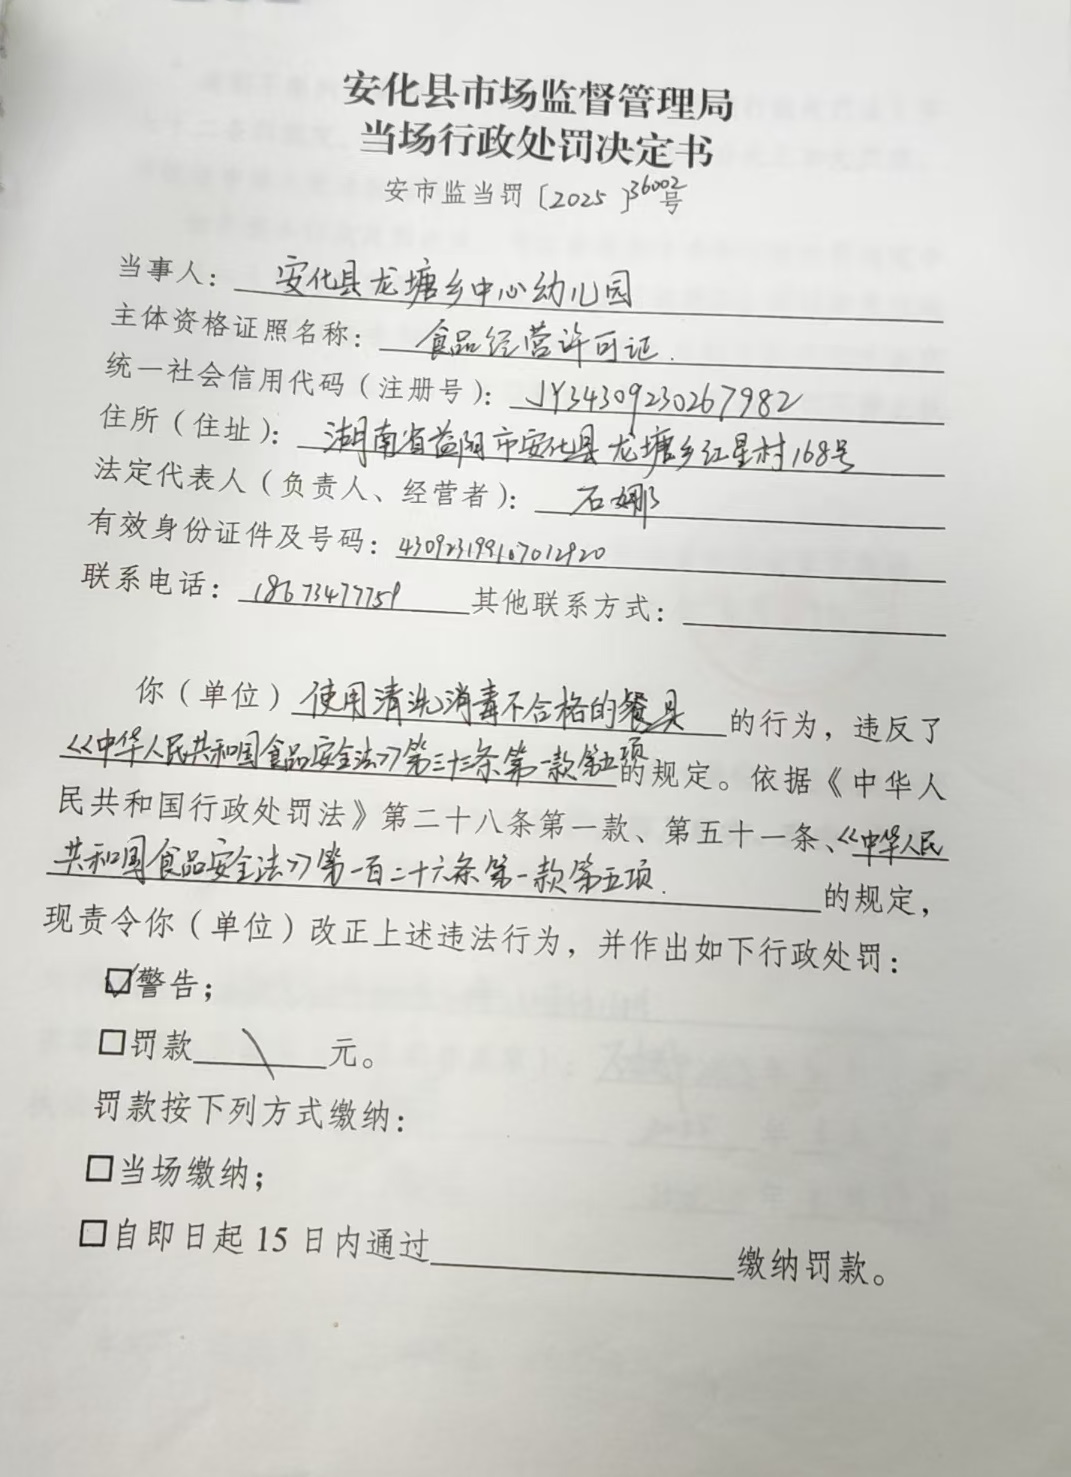 安化县市场监督管理局
当场行政处罚决定书
安市监当罚〔2025〕36002号
当事人：安化县龙塘乡中心幼儿园
主体资格证照名称：食品经营许可证.
统一社会信用代码（注册号）：JY34309230267982
住所（住址）：湖南省益阳市安化县龙塘乡红星村168号
法定代表人（负责人、经营者）：石娜
有效身份证件及号码：430923199107012920
联系电话：18673477759 其他联系方式：
你（单位）使用清洗消毒不合格的餐具的行为，违反了
《中华人民共和国食品安全法》第三十三条第一款第五项的规定。依据《中华人
民共和国行政处罚法》第二十八条第一款、第五十一条、《中华人民
共和国食品安全法》第一百二十六条第一款第五项.的规定，
现责令你（单位）改正上述违法行为，并作出如下行政处罚：
☑警告；
□罚款\元。
罚款按下列方式缴纳：
□当场缴纳；
□自即日起 15 日内通过缴纳罚款。